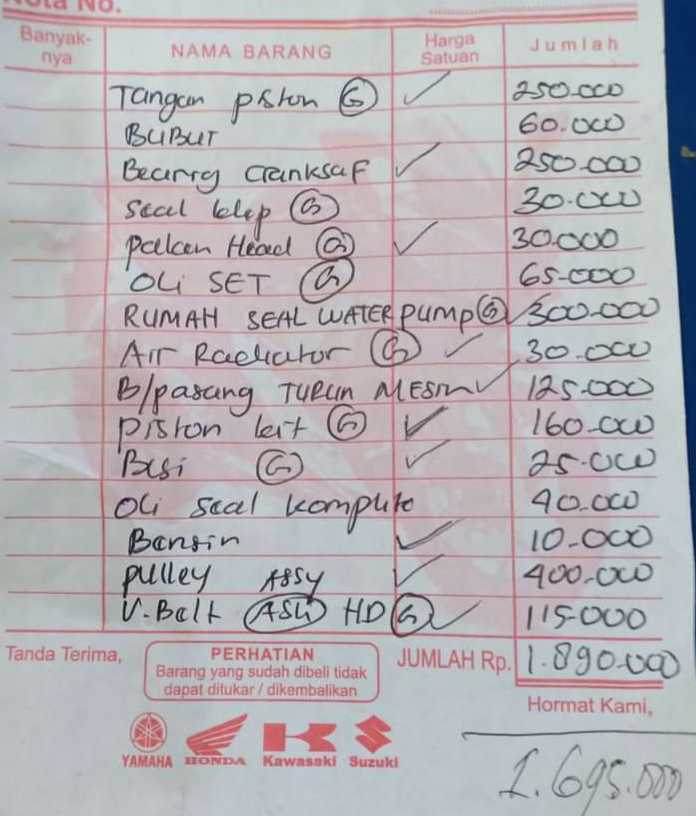 Nota No.
Banyak-nya NAMA BARANG Harga Satuan Jumlah
Tangan piston G ✓ 250.000
BUBUT 60.000
Bearing cranksaf ✓ 250.000
Seal klep G 30.000
paken Head G ✓ 30.000
OLi SET G 65.000
RUMAH SEAL WATER PUMP G ✓ 300.000
Air Radiator G ✓ 30.000
B/pasang TURUN MESIN ✓ 125.000
piston kit G ✓ 160.000
Busi G ✓ 25.000
Oli seal komplit 40.000
Bensin ✓ 10.000
pulley ASSY ✓ 400.000
V.Belt ASLI HD G ✓ 115.000
Tanda Terima, PERHATIAN JUMLAH Rp. 1.890.000
Barang yang sudah dibeli tidak
dapat ditukar / dikembalikan
Hormat Kami,
YAMAHA HONDA Kawasaki Suzuki
1.695.000